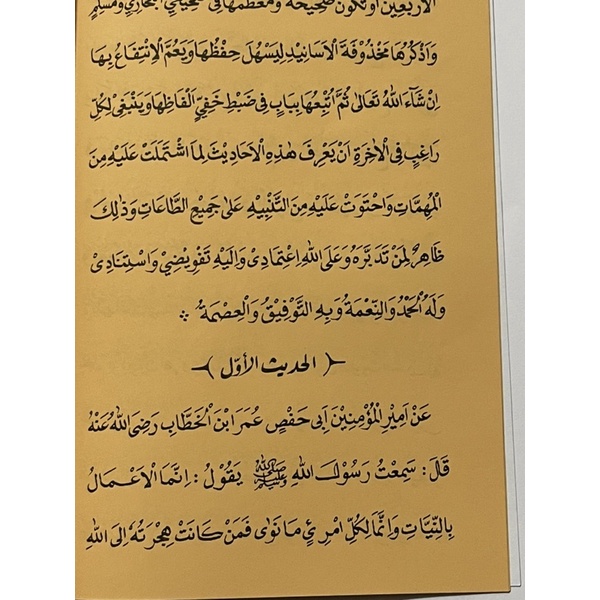 الأَرْبَعِيْنَ أَوْ تَكُوْنَ صَحِيْحَةً وَمُعْظَمُهَا فِى صَحِيْحَيِ الْبُخَارِيِّ وَمُسْلِمٍ
وَاَذْكُرُهَا مَحْذُوْفَةَ الْاَسَانِيْدِ لِيَسْهُلَ حِفْظُهَا وَيَعُمَّ الْاِنْتِفَاعُ بِهَا
اِنْ شَآءَ اللهُ تَعَالَى ثُمَّ اُتْبِعُهَا بِبَابٍ فِى ضَبْطِ خَفِيِّ اَلْفَاظِهَا وَيَنْبَغِى لِكُلِّ
رَاغِبٍ فِى الْاٰخِرَةِ اَنْ يَعْرِفَ هٰذِهِ الْاَحَادِيْثَ لِمَا اشْتَمَلَتْ عَلَيْهِ مِنَ
الْمُهِمَّاتِ وَاحْتَوَتْ عَلَيْهِ مِنَ التَّنْبِيْهِ عَلَى جَمِيْعِ الطَّاعَاتِ وَذٰلِكَ
ظَاهِرٌ لِمَنْ تَدَبَّرَهُ وَعَلَى اللهِ اعْتِمَادِىْ وَاِلَيْهِ تَفْوِيْضِيْ وَاسْتِنَادِىْ
وَلَهُ الْحَمْدُ وَالنِّعْمَةُ وَبِهِ التَّوْفِيْقُ وَالْعِصْمَةُ
الحديث الأوّل
عَنْ اَمِيْرِ الْمُؤْمِنِيْنَ اَبِى حَفْصٍ عُمَرَ ابْنِ الْخَطَّابِ رَضِيَ اللهُ عَنْهُ
قَالَ: سَمِعْتُ رَسُوْلَ اللهِ ﷺ يَقُوْلُ: اِنَّمَا الْاَعْمَالُ
بِالنِّيَّاتِ وَاِنَّمَا لِكُلِّ امْرِئٍ مَا نَوٰى فَمَنْ كَانَتْ هِجْرَتُهُ اِلَى اللهِ